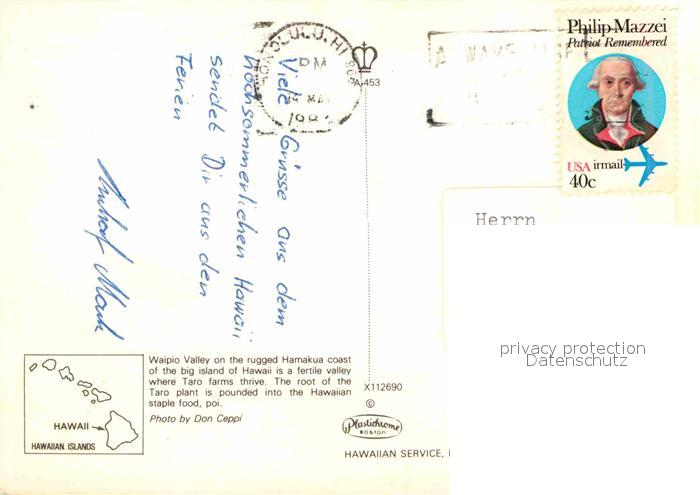 Viele Grüsse aus dem
hochsommerlichen Hawaii
sendet Dir aus den
Ferien
HONOLULU, HI
PM
MAY
A-453
Philip Mazzei
Patriot Remembered
USA airmail
40c
Herrn
privacy protection
Datenschutz
Waipio Valley on the rugged Hamakua coast
of the big island of Hawaii is a fertile valley
where Taro farms thrive. The root of the
Taro plant is pounded into the Hawaiian
staple food, poi.
Photo by Don Ceppi
HAWAII
HAWAIIAN ISLANDS
X112690
©
Plastichrome
BOSTON
HAWAIIAN SERVICE,